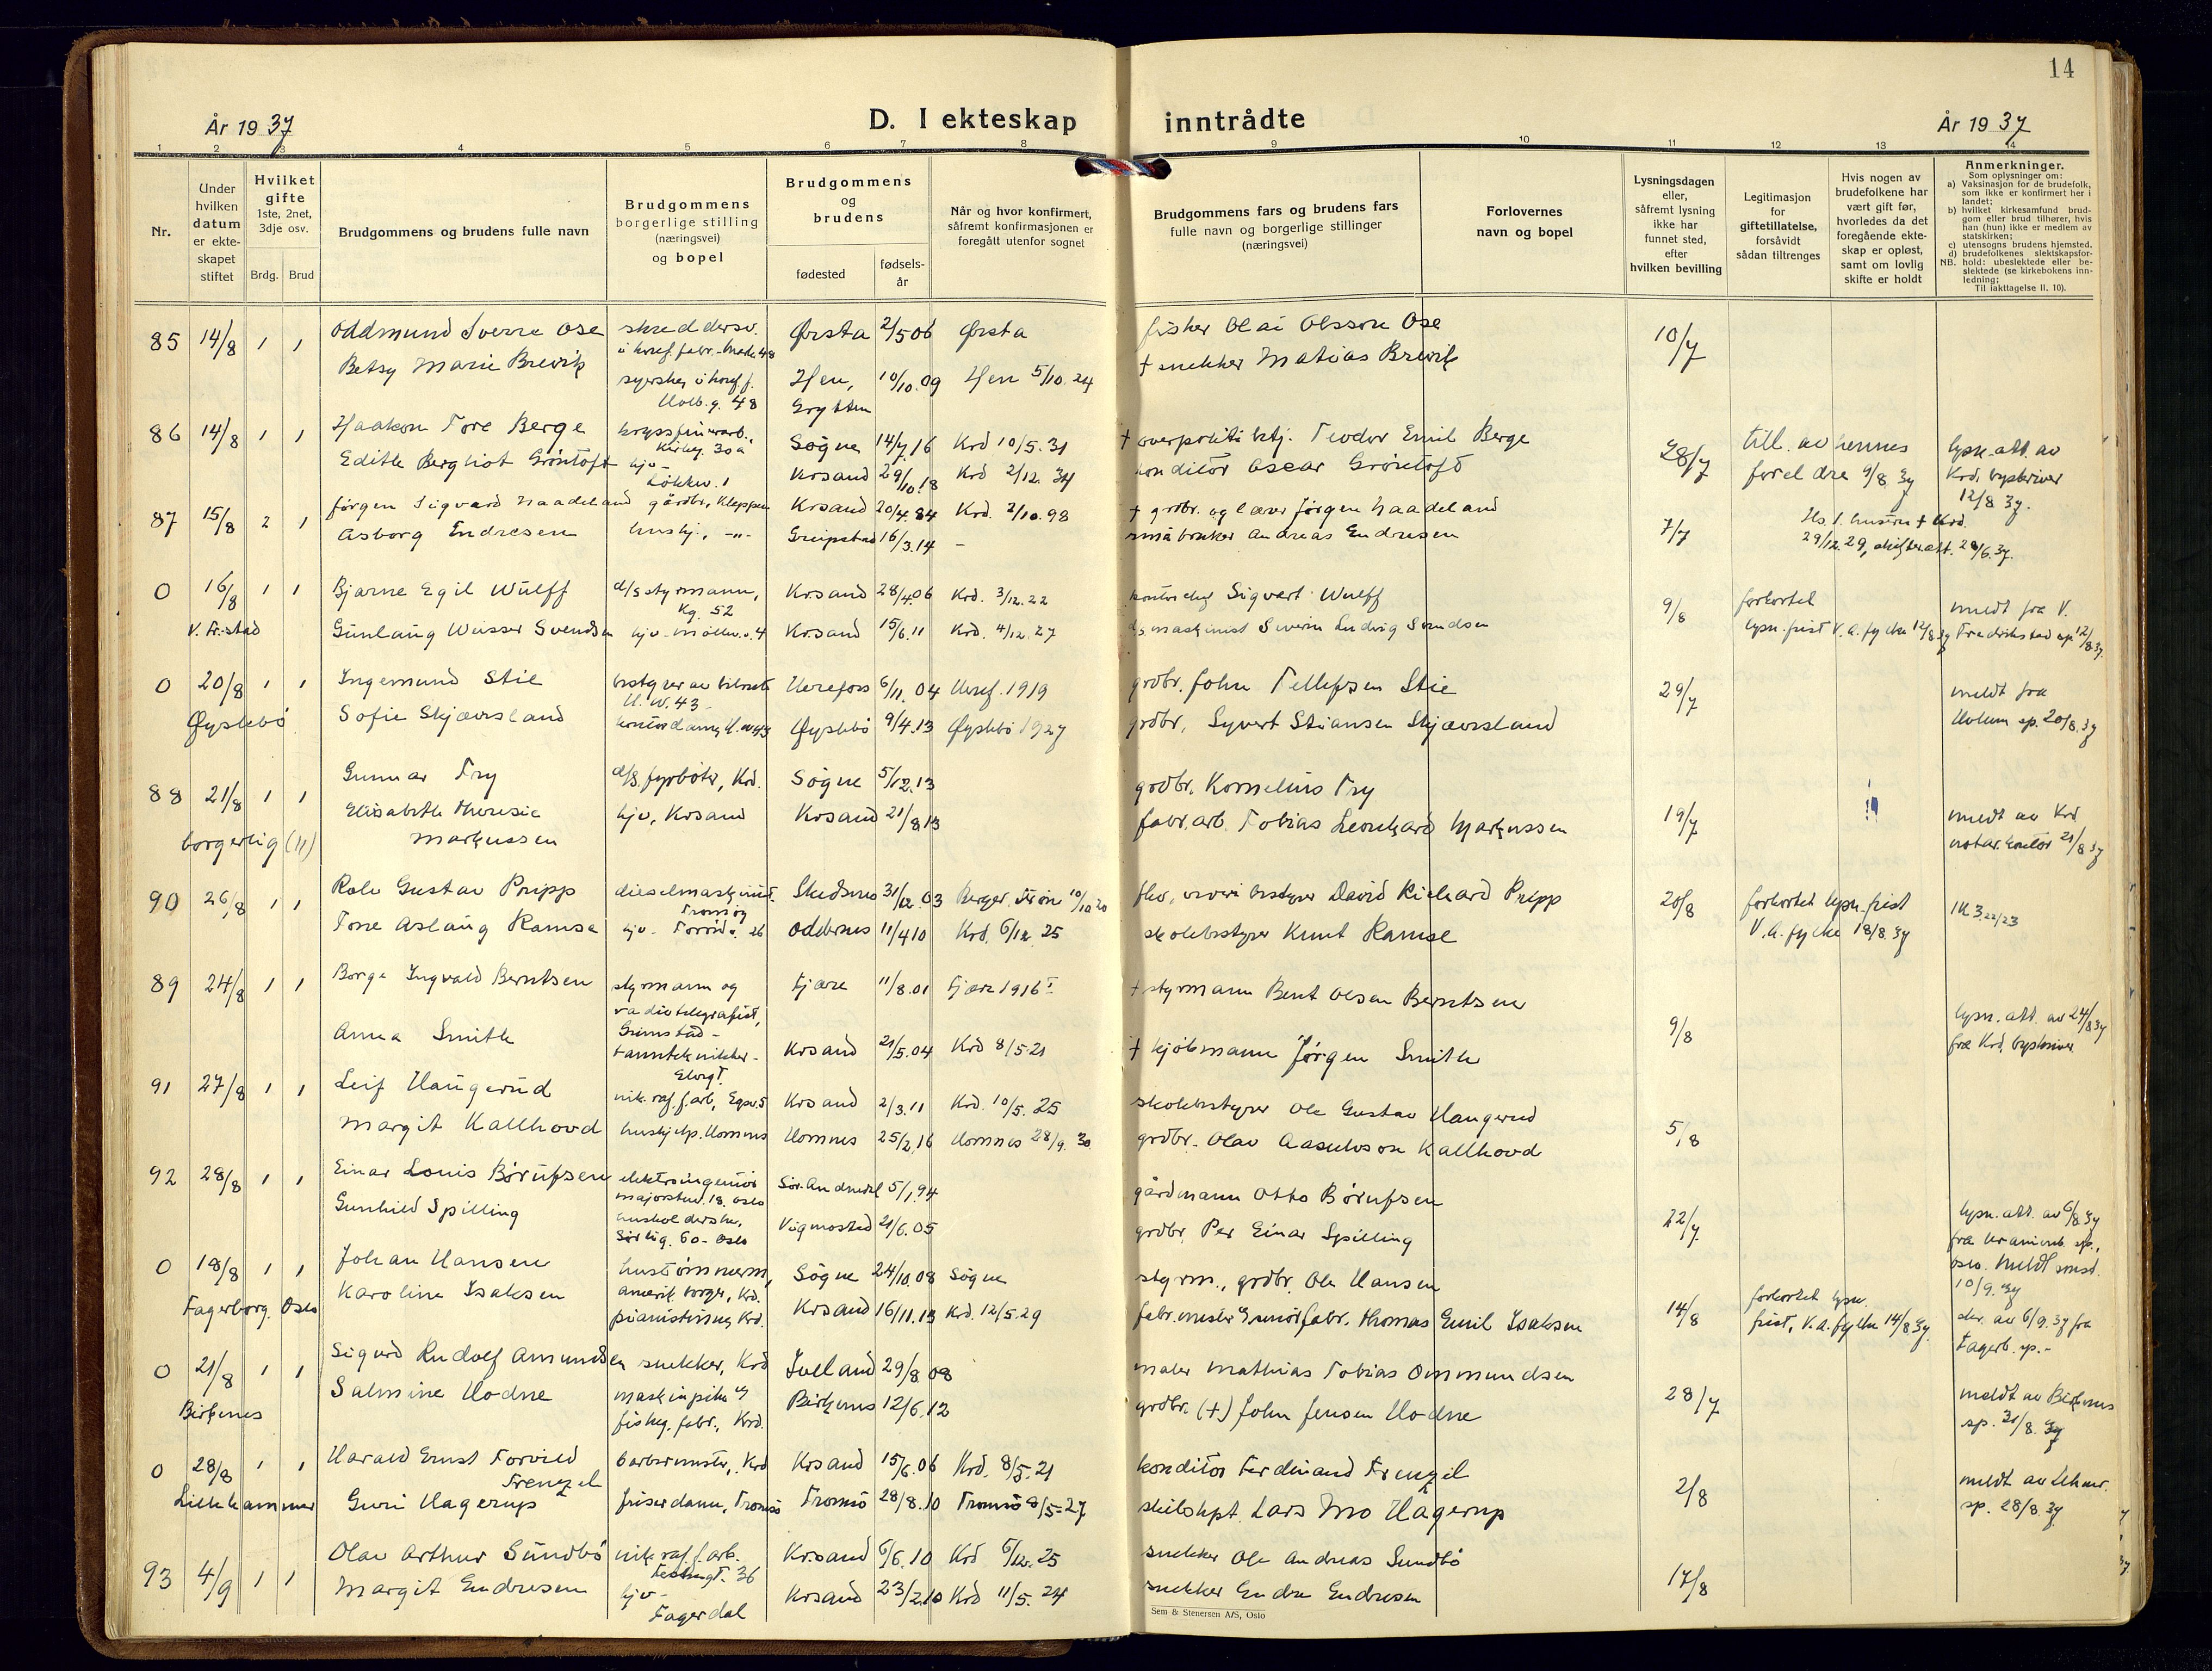 14
År 1937
D. I ekteskap inntrådte
År 1937
1 2 3 4 5 6 7 8 9 10 11 12 13 14
Nr.
Under hvilken datum er ekteskapet stiftet
Hvilket gifte
1ste, 2net, 3dje osv.
Brdg. Brud
Brudgommens og brudens fulle navn
Brudgommens borgerlige stilling (næringsvei) og bopel
Brudgommens og brudens
fødested
fødselsår
Når og hvor konfirmert, såfremt konfirmasjonen er foregått utenfor sognet
Brudgommens fars og brudens fars fulle navn og borgerlige stillinger (næringsvei)
Forlovernes navn og bopel
Lysningsdagen eller, såfremt lysning ikke har funnet sted, efter hvilken bevilling
Legitimasjon for giftetillatelse, forsåvidt sådan tiltrenges
Hvis nogen av brudefolkene har vært gift før, hvorledes da det foregående ekteskap er opløst, samt om lovlig skifte er holdt
Anmerkninger.
Som oplysninger om:
a) Vaksinasjon for de brudefolk, som ikke er konfirmert her i landet;
b) hvilket kirkesamfund brudgom eller brud tilhører, hvis han (hun) ikke er medlem av statskirken;
c) utensogns brudens hjemsted.
d) brudefolkenes slektskapsforhold: ubeslektede eller beslektede (se kirkebokens innledning;
NB. Til iakttagelse II, 10).
85 14/8 1 1 Oddmund Sverre Ose Ørsta 2/5 06 Ørsta fisker Olai Olsson Ose 10/7
Betsy Marie Brevik Hen, Grytten 10/10.09 Hen 5/10.24 † snekker Matias Brevik
86 14/8 1 1 Haakon Tore Berge Søgne 14/7.16 Krd 10/5.31 † overpolitibtj. Teodor Emil Berge 28/7 till. av hennes foreldre 9/8 37 lysn.att. av Krd. byskriver 12/8 37.
Edith Bergliot Grøntoft Krsand 29/10.18 Krd 2/12. 34 konditor Oscar Grøntoft
87 15/8 2 1 Jørgen Sigvard Haadeland gårdbr, Kleppen Krsand 20/4.84 Krd. 2/10.98 † grdbr. og lærer Jørgen Haadeland 7/7
Asborg Endresen hushj., -"- Greipstad 16/3.14 - småbruker Andreas Endresen
0 16/8 1 1 Bjarne Egil Wulff d/s styrmann, Kg. 52 Krsand 28/4.06 Krd. 3/12.22 Sigvert Wulff 9/8 forkortet lysn.frist V.A. fylke 12/8 37 meldt fra V. Fredrikstad sp 12/8 37.
V. Fr.stad Gunlaug Weisser Svendsen Krsand 15/6.11 Krd. 4/12.27 d/s maskinist Severin Ludvig Svendsen
0 20/8 1 1 Ingemund Stie Herefoss 6/11.04 Heref. 1919 grdbr. John Tellefsen Stie 29/7 meldt fra Holum sp. 20/8.37
Øyslebø Sofie Skjævesland Øyslebø 9/4.13 Øyslebø 1927 grdbr. Syvert Stiansen Skjævesland
88 21/8 1 1 Gunnar Try d/s. fyrbøter, Krd. Søgne 5/12.13 grdbr. Kornelius Try 19/7 meldt av Krd notar.kontor 21/8 37
borgerlig (11) Elisabeth Theresie Markussen hjv, Krsand Krsand 21/8.13 fabr.arb. Tobias Leonhard Markussen
90 26/8 1 1 Rolv Gustav Pripp Skedsmo 31/12.03 David Richard Pripp 20/8 forkortet lysn.frist V.A. fylke 18/8.37
Tone Aslaug Ramse Oddernes 11/4 10 Krd. 6/12.25 skolebstyrer Knut Ramse
89 24/8 1 1 Borge Ingvald Berntsen styrmann og radiotelegrafist, Grimstad - Fjære 11/8.01 Fjære 1916 † styrmann Bent Olsen Berntsen 9/8 lysn. att. av 24/8 37 fra Krd. byskriver
Anna Smith tanntekniker - Elvegt. Krsand 21/5.04 Krd 8/5-21 † kjøbmann Jørgen Smith
91 27/8 1 1 Leif Haugerud nik.raf.f.arb, Egsv.5 Krsand 2/3.11 Krd. 10/5.25 skolebstyrer Ole Gustav Haugerud 5/8
Margit Kallhovd hushjelp. Homnes Homnes 25/2.16 Homnes 28/9.30 grdbr. Olav Aasulvson Kallhovd
92 28/8 1 1 Einar Louis Børufsen elektroingeniør majorstuv. 18. Oslo Sør-Audnedal 5/1.94 gårdmann Otto Børufsen 22/7 lysn. att. av 6/8 37 fra Uranienb. sp., Oslo. Meldt smst. 10/9.37
Gunhild Spilling Vigmostad 21/6.05 grdbr. Per Einar Spilling
0 18/8 1 1 Johan Hansen hustømmerm, amerik. borger, Krd. Søgne 24/10.08 Søgne styrm., grdbr. Ole Hansen 14/8 forkortet lysn. frist, V.A. fylke 14/8 37. skr. av 6/9.37 fra Fagerb. sp.-
Fagerborg. Oslo Karoline Isaksen pianistinne, Krd. Krsand 16/11.13 Krd. 12/5.29 Thomas Emil Isaksen
0 21/8 1 1 Sigurd Rudolf Amundsen snekker, Krd Iveland 29/8 08 maler Mathias Tobias Ommundsen 28/7 meldt av Birkenes sp. 31/8.37
Birkenes Salmine Hodne Birkenes 12/6.12 grdbr. (+) John Jensen Hodne
0 28/8 1 1 Harald Ernst Torvild Frenzel barbermester, Krd Krsand 15/6.06 Krd. 8/5.21 konditor Ferdinand Frenzel 2/8 meldt av Lhmr. sp. 28/8.37
Lillehammer Guri Hagerup friserdame, Tromsø Tromsø 28/8.10 Tromsø 8/5-27 skibskpt. Lars Mo Hagerup
93 4/9 1 1 Olav Arthur Sundbø nik. raf.f.arb. Krsand 6/6.10 Krd 6/12.25 snekker Ole Andreas Sundbø 17/8
Margit Endresen hjv - Fagerdal Krsand 23/2.10 Krd 11/5.24 snekker Endre Endresen
Sem & Stenersen A/S, Oslo